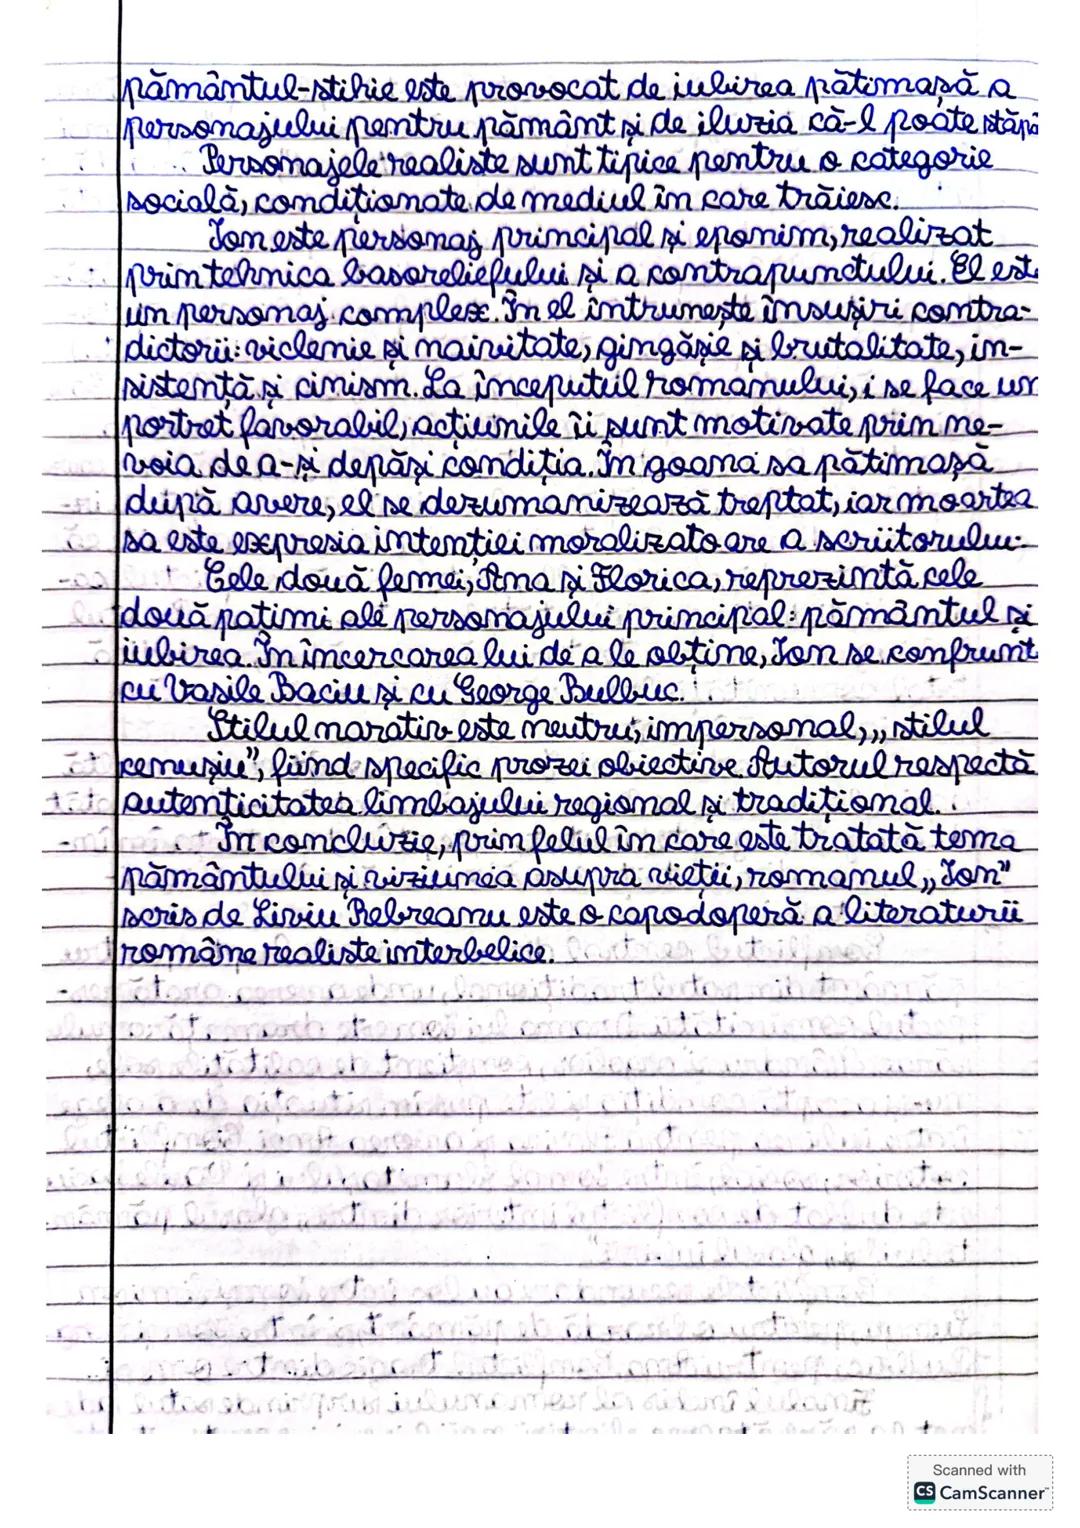 pământul-stihie este provocat de iubirea pătimașă a
personajului pentru pământ și de iluzia că-l poate stăpâ
Personajele realiste sunt tipice pentru o categorie
socială, condiționate de mediul în care trăiesc.
Ion este personaj principal și eponim, realizat
prin tehnica basoreliefului și a contrapunctului. El este
un personaj complex. În el întrunește însușiri contra-
dictorii: viclenie și naivitate, gingășie și brutalitate, in-
sistență și cinism. La începutul romanului, i se face un
portret favorabil, acțiunile îi sunt motivate prin ne-
voia de a-și depăși condiția. În goana sa pătimașă
după avere, el se dezumanizează treptat, iar moartea
sa este expresia intenției moralizatoare a scriitorului.
Cele două femei, Ana și Florica, reprezintă cele
două patimi ale personajului principal: pământul și
iubirea. În încercarea lui de a le obține, Ion se confrunt
cu Vasile Baciu și cu George Bulbuc.
Stilul narativ este neutru, impersonal, „stilul
cenușiu”, fiind specific prozei obiective. Autorul respectă
autenticitatea limbajului regional și tradițional.
În concluzie, prin felul în care este tratată tema
pământului și viziunea asupra vieții, romanul „Ion”
scris de Liviu Rebreanu este o capodoperă a literaturii
române realiste interbelice.
Scanned with
CS CamScanner